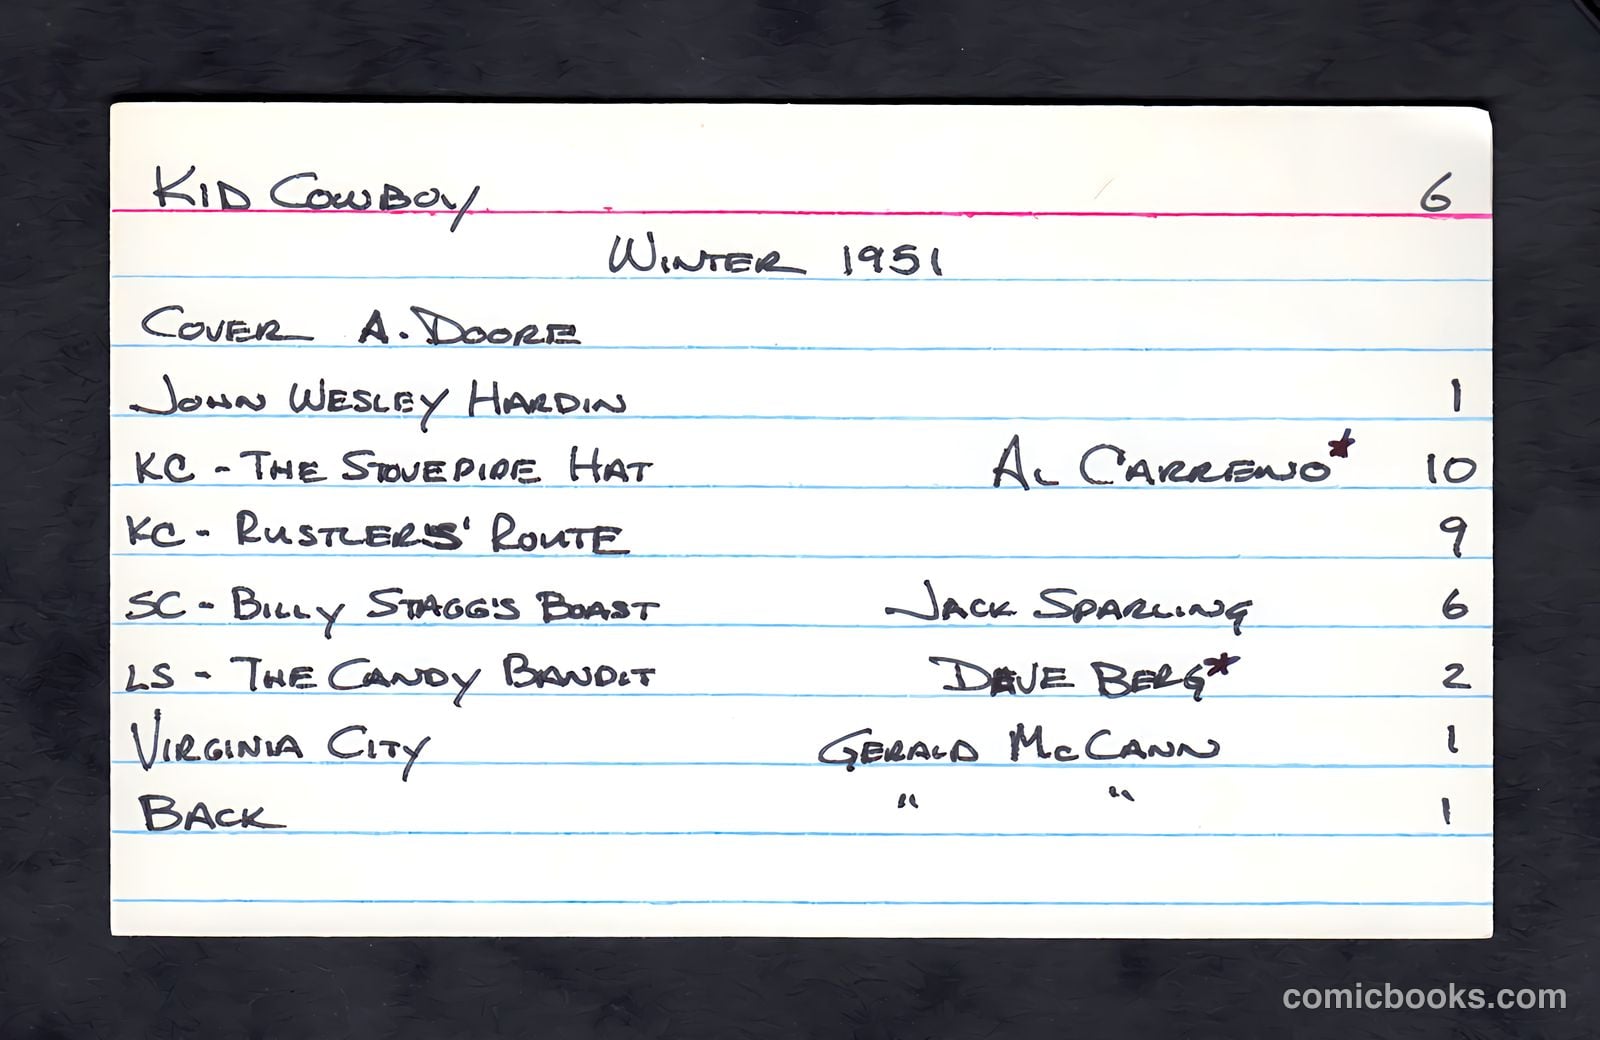 KID COWBOY 6
WINTER 1951
COVER A. DOORE
JOHN WESLEY HARDIN 1
KC - THE STOVEPIPE HAT AL CARRENO* 10
KC - RUSTLERS' ROUTE 9
SC - BILLY STAGG'S BOAST JACK SPARLING 6
LS - THE CANDY BANDIT DAVE BERG* 2
VIRGINIA CITY GERALD MCCANN 1
BACK " " 1
comicbooks.com